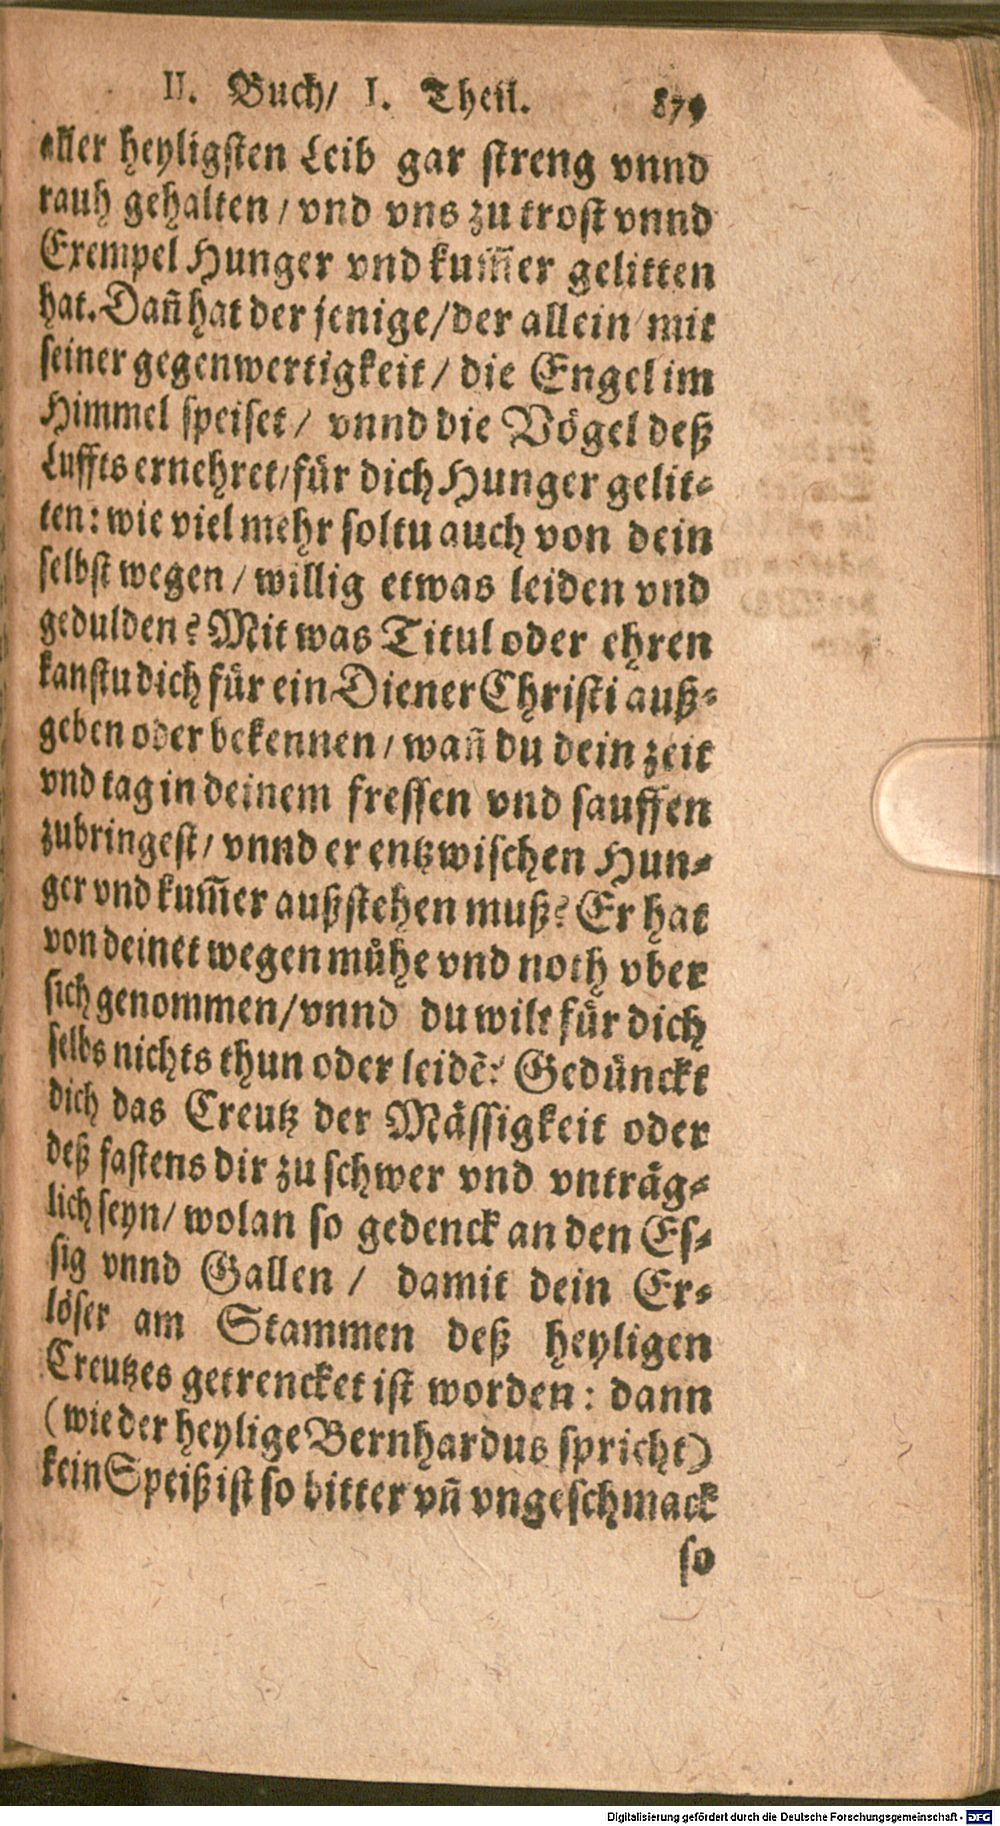 II. Buch/ I. Theil. 879
aller heyligsten Leib gar streng vnnd
rauh gehalten / vnd vns zu trost vnnd
Exempel Hunger vnd kum̃er gelitten
hat. Dañ hat der jenige/der allein mit
seiner gegenwertigkeit / die Engel im
Himmel speiset / vnnd die Vögel deß
Luffts ernehret/für dich Hunger gelit⸗
ten: wie viel mehr soltu auch von dein
selbst wegen / willig etwas leiden vnd
gedulden? Mit was Titul oder ehren
kanstu dich für ein Diener Christi auß⸗
geben oder bekennen / wañ du dein zeit
vnd tag in deinem fressen vnd sauffen
zubringest/ vnnd er entzwischen Hun⸗
ger vnd kum̃er außstehen muß? Er hat
von deinet wegen mühe vnd noth vber
sich genommen/vnnd du wilt für dich
selbs nichts thun oder leidẽ? Gedünckt
dich das Creutz der Mässigkeit oder
deß fastens dir zu schwer vnd vnträg⸗
lich seyn/ wolan so gedenck an den Es⸗
sig vnnd Gallen / damit dein Er⸗
löser am Stammen deß heyligen
Creutzes getrencket ist worden: dann
(wie der heylige Bernhardus spricht)
kein Speiß ist so bitter vñ vngeschmack
so
Digitalisierung gefördert durch die Deutsche Forschungsgemeinschaft - DFG